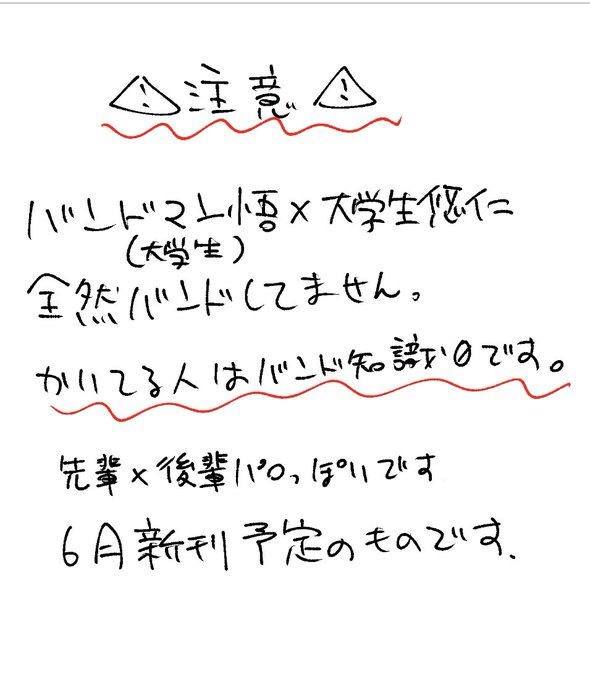 ⚠注意⚠
バンドマン悟×大学生悠仁
(大学生)
全然バンドしてません。
かいてる人はバンド知識が0です。
先輩×後輩パロっぽいです
6月新刊予定のものです.